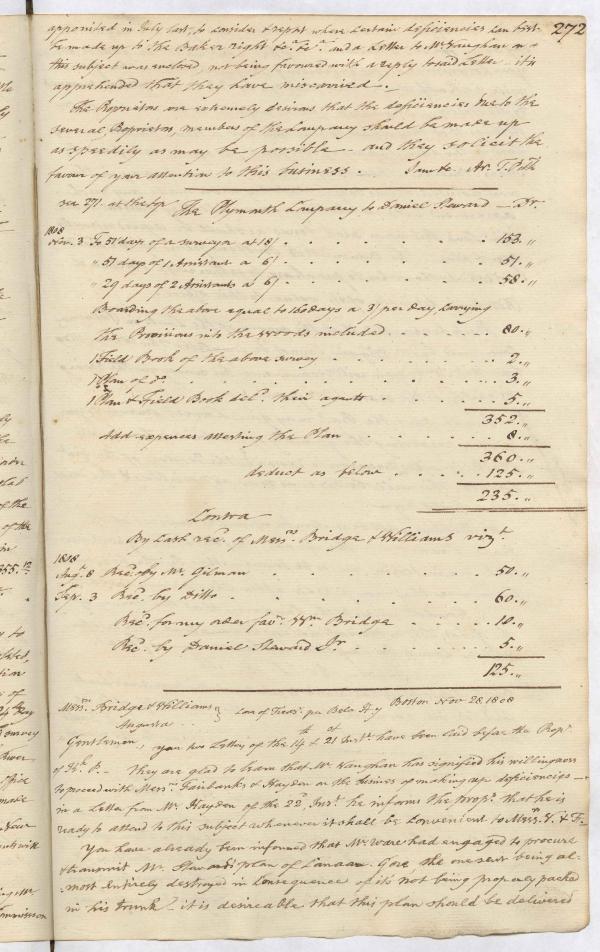 272
appointed in July last, to consider & report where certain deficiencies can best
be made up to the Baker right &c. &c. and a Letter to Mr Vaughan on
this subject was enclosed, not being favoured with a reply to said Letter it is
apprehended that they have miscarried.
The Proprietors are extremely desirous that the deficiencies due to the
several Proprietors, members of the Company should be made up
as speedily as may be possible and they solicit the
favour of your attention to this business. Ar. T. Pth
see 271 at the top The Plymouth Company to Daniel Steward Dr.
1808
Nov. 3 To 51 days of a surveyor at 18/ . . . . 153.,,
,, 51 days of 1 Assistant a 6/ . . . . 51.,,
,, 29 days of 2 Assistants a 6/ . . . . 58.,,
Boarding the above equal to 160 days a 3/ per day carrying
the Provisions into the woods included . . . . 80.,,
1 Field Book of the above survey . . . . 2.,,
1 Plan of do. . . . . 3.,,
1 Plan & Field Book deld. their agents . . . . 5.,,
352.,,
Add expences attesting the Plan . . . . 8.,,
360.,,
deduct as below . . . . 125.,,
235.,,
Contra
By Cash recd. of Messrs. Bridge & Williams vizt.
1808
Augt. 8 Recd. by Mr. Gilman . . . . 50.,,
Sep. 3 Recd. by Ditto . . . . 60.,,
Recd. for my order favr. Wm Bridge . . . . 10.,,
Recd. by Daniel Steward Jr. . . . . 5.,,
125.,,
Messrs. Bridge & Williams } Boston Nov 28. 1808
Augusta . .
Gentlemen, your two Letters of the 14th & 21st Inst. have been laid before the Propr.
of Kk. P. They are glad to learn that Mr. Vaughan has signified his willingness
to proceed with Messrs Fairbanks & Hayden on the business of making up deficiencies
in a Letter from Mr Hayden of the 22d. Inst. he informs the Propr. that he is
ready to attend to this subject whenever it shall be convenient to Messrs. V. & F.
You have already been informed that Mr Ware had engaged to procure
& transmit Mr. Steward's plan of Canaan Gore the one sent being al-
most entirely destroyed in consequence of its not being properly packed
in his trunk it is desireable that this plan should be delivered